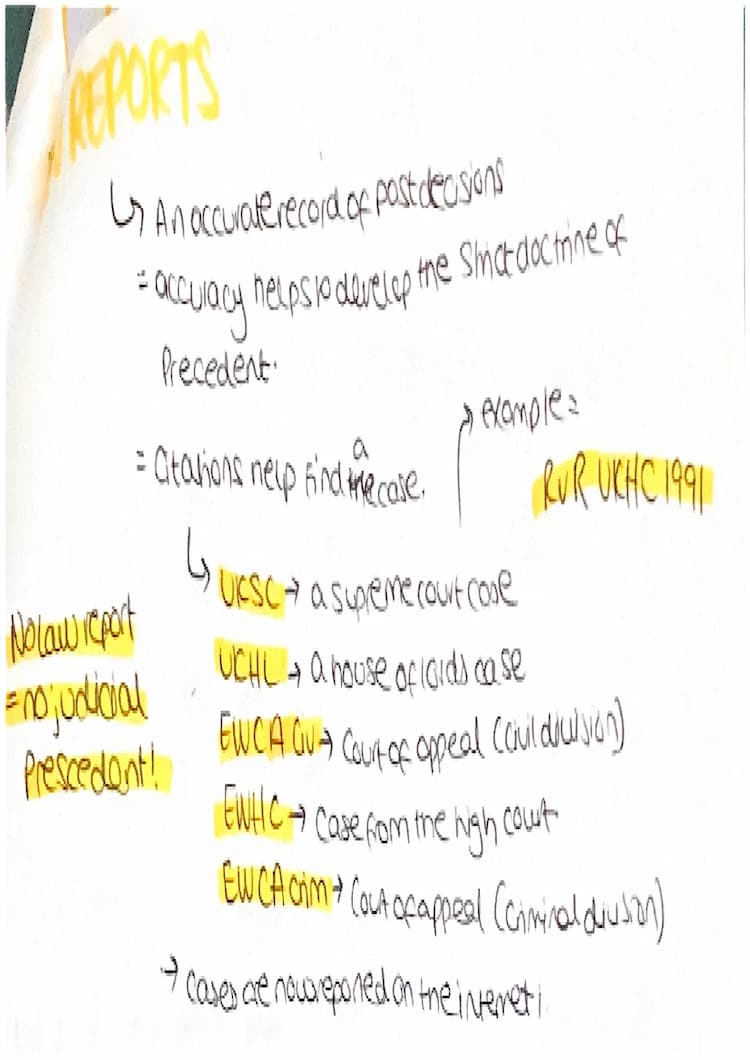 REPORTS
↳ An accurate record of past decisions
= accuracy helps to develop the strict doctrine of
Precedent.
= Citations help find a case.
→ example =
RvR UKHC 1991
↳ UKSC → a supreme court case
UCHL → a house of lords case
EWCA civ → Court of appeal (civil division)
EWHC → Case from the high court
EWCA crim → Court of appeal (criminal division)
No law report
= no judicial
Prescedant!
→ Cases are now reported on the internet!